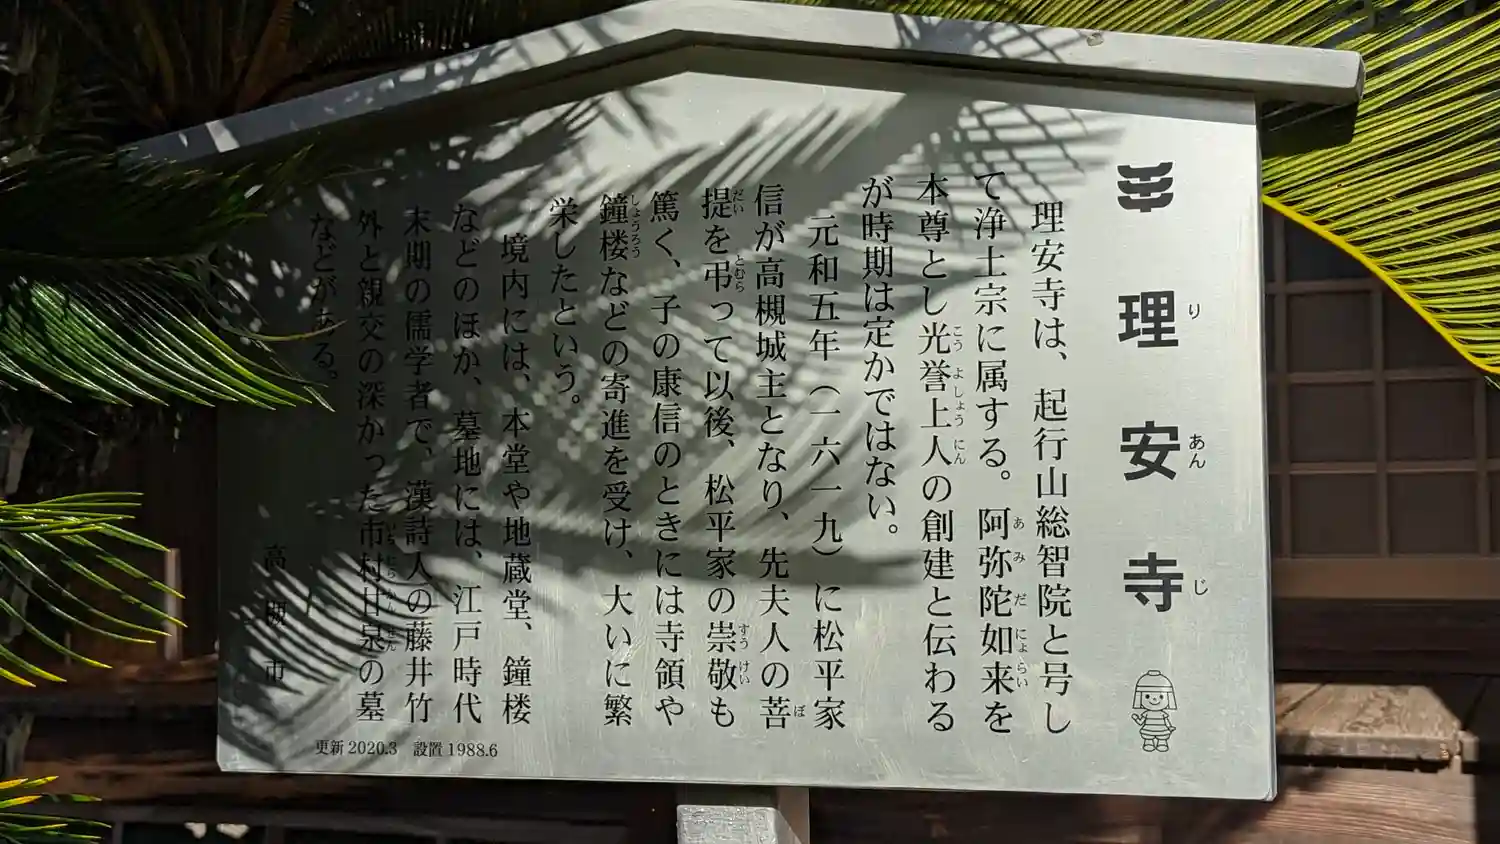 理安寺
り あん じ
理安寺は、起行山総智院と号し
て浄土宗に属する。阿弥陀如来を
あみだにょらい
本尊とし光誉上人の創建と伝わる
こうよしょうにん
が時期は定かではない。
元和五年(一六一九)に松平家
信が高槻城主となり、先夫人の菩
ぼ
提を弔って以後、松平家の崇敬も
だい とむら すうけい
篤く、子の康信のときには寺領や
鐘楼などの寄進を受け、大いに繁
しょうろう
栄したという。
境内には、本堂や地蔵堂、鐘楼
などのほか、墓地には、江戸時代
末期の儒学者で、漢詩人の藤井竹
外と親交の深かった市村甘泉の墓
などがある。
高槻市
更新 2020.3 設置 1988.6